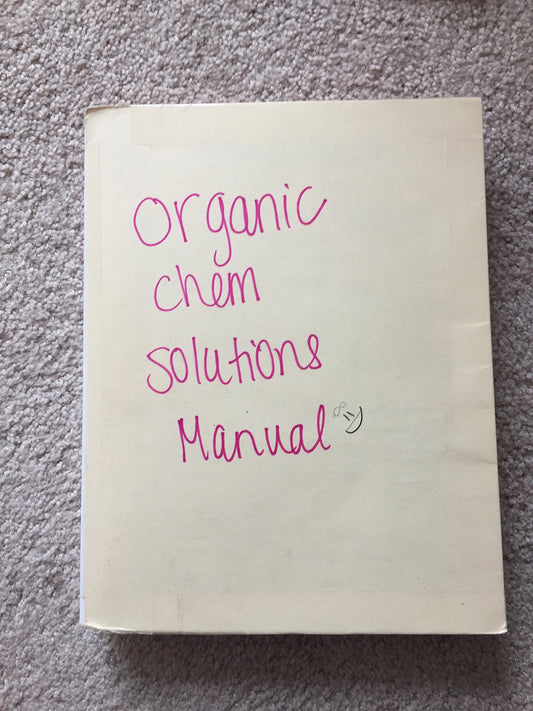 Organic
chem
solutions
Manual